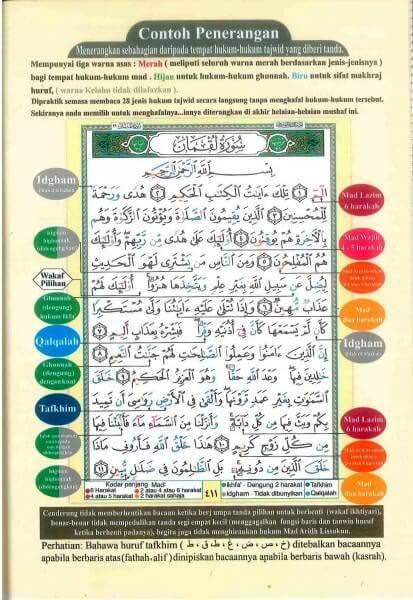 Contoh Penerangan
Menerangkan sebahagian daripada tempat hukum-hukum tajwid yang diberi tanda.
Mempunyai tiga warna asas : Merah ( meliputi seluruh warna merah berdasarkan jenis-jenisnya )
bagi tempat hukum-hukum mad . Hijau untuk hukum-hukum ghunnah. Biru untuk sifat makhraj
huruf, ( warna Kelabu tidak dilafazkan ).
Dipraktik semasa membaca 28 jenis hukum tajwid secara langsung tanpa menghafal hukum-hukum tersebut.
Sekiranya anda memilih untuk menghafalnya...ianya diterangkan di akhir helaian-helaian mushaf ini.
سُورَةُ لُقْمَانَ
بِسْمِ ٱللَّهِ ٱلرَّحْمَٰنِ ٱلرَّحِيمِ
الٓمٓ ١ تِلْكَ ءَايَٰتُ ٱلْكِتَٰبِ ٱلْحَكِيمِ ٢ هُدًى وَرَحْمَةً
لِّلْمُحْسِنِينَ ٣ ٱلَّذِينَ يُقِيمُونَ ٱلصَّلَوٰةَ وَيُؤْتُونَ ٱلزَّكَوٰةَ وَهُم
بِٱلْءَاخِرَةِ هُمْ يُوقِنُونَ ٤ أُو۟لَٰٓئِكَ عَلَىٰ هُدًى مِّن رَّبِّهِمْ وَأُو۟لَٰٓئِكَ
هُمُ ٱلْمُفْلِحُونَ ٥ وَمِنَ ٱلنَّاسِ مَن يَشْتَرِى لَهْوَ ٱلْحَدِيثِ
لِيُضِلَّ عَن سَبِيلِ ٱللَّهِ بِغَيْرِ عِلْمٍ وَيَتَّخِذَهَا هُزُوًا أُو۟لَٰٓئِكَ لَهُمْ
عَذَابٌ مُّهِينٌ ٦ وَإِذَا تُتْلَىٰ عَلَيْهِ ءَايَٰتُنَا وَلَّىٰ مُسْتَكْبِرًا
كَأَن لَّمْ يَسْمَعْهَا كَأَنَّ فِىٓ أُذُنَيْهِ وَقْرًا فَبَشِّرْهُ بِعَذَابٍ أَلِيمٍ ٧
إِنَّ ٱلَّذِينَ ءَامَنُوا۟ وَعَمِلُوا۟ ٱلصَّٰلِحَٰتِ لَهُمْ جَنَّٰتُ ٱلنَّعِيمِ ٨
خَٰلِدِينَ فِيهَا وَعْدَ ٱللَّهِ حَقًّا وَهُوَ ٱلْعَزِيزُ ٱلْحَكِيمُ ٩ خَلَقَ
ٱلسَّمَٰوَٰتِ بِغَيْرِ عَمَدٍ تَرَوْنَهَا وَأَلْقَىٰ فِى ٱلْأَرْضِ رَوَٰسِىَ أَن تَمِيدَ
بِكُمْ وَبَثَّ فِيهَا مِن كُلِّ دَآبَّةٍ وَأَنزَلْنَا مِنَ ٱلسَّمَآءِ مَآءً فَأَنۢبَتْنَا فِيهَا
مِن كُلِّ زَوْجٍ كَرِيمٍ ١٠ هَٰذَا خَلْقُ ٱللَّهِ فَأَرُونِى مَاذَا
خَلَقَ ٱلَّذِينَ مِن دُونِهِۦ بَلِ ٱلظَّٰلِمُونَ فِى ضَلَٰلٍ مُّبِينٍ ١١
Idgham
Idgham
bighunnah
(didengungkan)
Wakaf
Pilihan
Ghunnah
(dengung)
hukum Ikfa'
Qalqalah
Ghunnah
(dengung)
dengan kuat
Tafkhim
Idgham
bighunnah
(didengungkan)
Mad Lazim
6 harakah
Mad Wajib
4 - 5 harakah
Mad
dua harakah
Idgham
Mad Lazim
6 harakah
Mad
dua harakah
Kadar panjang Mad:
6 Harakat
2 atau 4 atau 6 harakat
4 atau 5 harakat
2 harakat sahaja
٤١١
Ikhfa' - Dengung 2 harakat
Tafkhim
Idgham - Tidak dibunyikan
Qalqalah
Cenderung tidak memberhentikan bacaan ketika berjumpa tanda pilihan untuk berhenti (wakaf ikhtiyari),
benar-benar tidak mempedulikan tanda segi empat kecil (menggagalkan fungsi baris dan tanwin huruf
ketika berhenti padanya), begitu juga tidak menghiraukan hukum Mad Aridh Lissukun.
Perhatian: Bahawa huruf tafkhim ( خ ، ص ، ض ، غ ، ط ، ق ، ظ ) ditebalkan bacaannya
apabila berbaris atas(fathah-alif ) dinipiskan bacaannya apabila berbaris bawah (kasrah).